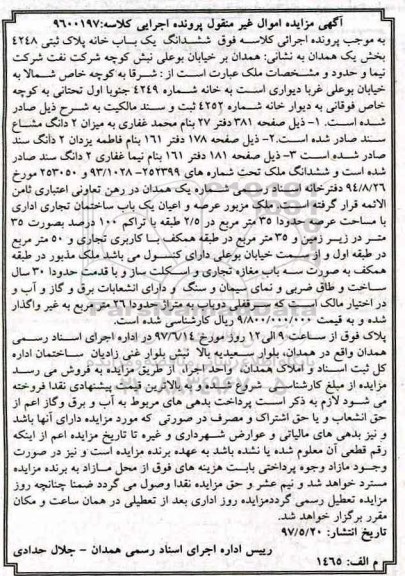 آگهی مزایده اموال غیر منقول پرونده اجرایی کلاسه:۹۶۰۰۱۹۷
به موجب پرونده اجرائی کلاسه فوق ششدانگ یک باب خانه پلاک ثبتی ۴۲۴۸
بخش یک همدان به نشانی: همدان بر خیابان بوعلی نبش کوچه شرکت نفت شرکت
نیما و حدود و مشخصات ملک عبارت است از: شرقا به کوچه خاص شمالا به
خیابان بوعلی غربا دیواری است به خانه شماره ۴۲۴۹ جنوبا اول تحتانی به کوچه
خاص فوقانی به دیوار خانه شماره ۴۲۵۲ ثبت و سند مالکیت به شرح ذیل صادر
شده است. ۱- ذیل صفحه ۳۸۱ دفتر ۲۷ بنام محمد غفاری به میزان ۲ دانگ مشاع
سند صادر شده است.۲- ذیل صفحه ۱۷۸ دفتر ۱۶۱ بنام فاطمه یزدان ۲ دانگ سند
صادر شده است ۳- ذیل صفحه ۱۸۱ دفتر ۱۶۱ بنام نیما غفاری ۲ دانگ سند صادر
شده است و ششدانگ ملک تحت شماره های ۲۵۲۳۹۹- ۹۳/۱۰/۲۸ و ۲۵۳۰۵۰ مورخ
۹۴/۸/۲۶ دفترخانه اسناد رسمی شماره یک همدان در رهن تعاونی اعتباری ثامن
الائمه قرار گرفته است. ملک مزبور عرصه و اعیان یک باب ساختمان تجاری اداری
با مساحت عرصه حدودا ۳۵ متر مربع در ۲/۵ طبقه با تراکم ۱۰۰ درصد بصورت ۳۵
متر در زیر زمین و ۳۵ متر مربع در طبقه همکف با کاربری تجاری و ۵۰ متر مربع
در طبقه اول و از سمت خیابان بوعلی دارای کنسول می باشد ملک مذبور در طبقه
همکف به صورت سه باب مغازه تجاری و اسکلت ساز و با قدمت حدودا ۳۰ سال
ساخت و طاق ضربی و نمای سیمان و سنگ و دارای انشعابات برق و گاز و آب و
در اختیار مالک است که سرقفلی دوباب به متراژ حدودا ۲۶ متر مربع به غیر واگذار
شده و به قیمت ۹/۸۰۰/۰۰۰/۰۰۰ ریال کارشناسی شده است.
پلاک فوق از ساعت ۹ الی ۱۲ روز مورخ ۹۷/۶/۱۴ در اداره اجرای اسناد رسمی
همدان واقع در همدان، بلوار سعیدیه بالا نبش بلوار غنی زادیان ساختمان اداره
کل ثبت اسناد و املاک همدان، واحد اجرا، از طریق مزایده به فروش می رسد
مزایده از مبلغ کارشناسی شروع گردیده و به بالاترین قیمت پیشنهادی نقدا فروخته
می شود لازم به ذکر است پرداخت بدهی های مربوط به آب و برق وگاز اعم از
حق انشعاب و یا حق اشتراک و مصرف در صورتی که مورد مزایده دارای آنها باشد
و نیز بدهی های مالیاتی و عوارض شهرداری و غیره تا تاریخ مزایده اعم از اینکه
رقم قطعی آن معلوم شده یا نشده باشد به عهده برنده مزایده است و نیز در صورت
وجود مازاد وجوه پرداختی بابت هزینه های فوق از محل مازاد به برنده مزایده
مسترد خواهد شد و نیم عشر و حق مزایده نقدا وصول می گردد ضمنا چنانچه روز
مزایده تعطیل رسمی گرددمزایده روز اداری بعد از تعطیلی در همان ساعت و مکان
مقرر برگزار خواهد شد.
تاریخ انتشار: ۹۷/۵/۲۰
رییس اداره اجرای اسناد رسمی همدان - جلال حدادی
م الف: ۱۴۶۵